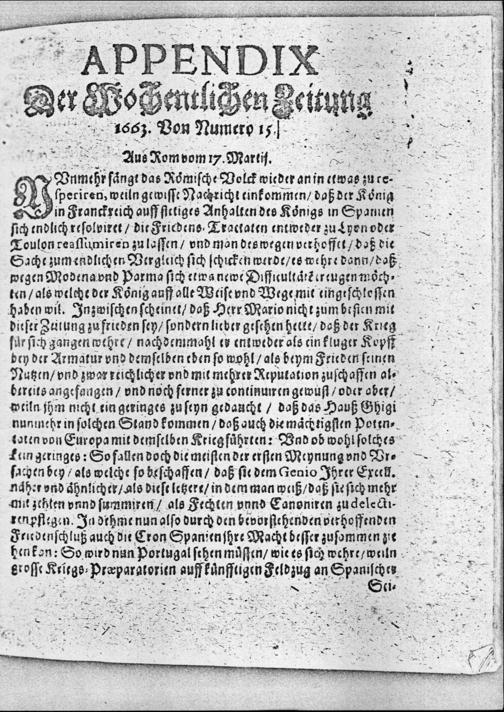 APPENDIX
Der Wochentlichen Zeitung
1663. Von Numero 15.
Aus Rom vom 17. Martij.
NUnmehr fängt das Römische Volck wieder an in etwas zu re-
speriren, weiln gewisse Nachricht einkommen / daß der König
in Franckreich auff stetiges Anhalten des Königs in Spanien
sich endlich resolviret / die Friedens-Tractaten entweder zu Lyon oder
Toulon reassumiren zu lassen / und man deswegen verhoffet / daß die
Sache zum endlichen Vergleich sich schicken werde / es wehre dann / daß
wegen Modena und Parma sich etwa neue Difficultäten eugen möch-
ten / als welche der König auff alle Weise und Wege mit eingeschlossen
haben wil. Inzwischen scheinet / daß Herr Mario nicht zum besten mit
dieser Zeitung zu frieden sey / sondern lieber gesehen hette / daß der Krieg
für sich gangen wehre / nachdenmahl er entweder als ein kluger Kopff
bey der Armatur und demselben eben so wohl / als beym Frieden seinen
Nutzen / und zwar reichlicher und mit mehrer Reputation zuschaffen al-
bereits angefangen / und noch ferner zu continuiren gewust / oder aber /
weiln ihm nicht ein geringes zu seyn gedaucht / daß das Hauß Ghigi
nunmehr in solchen Stand kommen / daß auch die mächtigsten Poten-
taten von Europa mit demselben Krieg führten: Und ob wohl solches
kein geringes: So fallen doch die meisten der ersten Meynung und Ur-
sachen bey / als welche so beschaffen / daß sie dem Genio Ihrer Excell.
näher und ähnlicher / als diese letzere / in dem man weiß / daß sie sich mehr
mit zehlen vnnd summiren / als Fechten vnnd Canoniren zu delecti-
ren pflegen. In dehme nun also durch den bevorstehenden verhoffenden
Friedenschluß auch die Cron Spanien ihre Macht besser zusammen zie
hen kan: So wird nun Portugal sehen müssen / wie es sich wehre / weiln
grosse Kriegs-Præparatorien auff künfftigen Feldzug an Spanischer
Sei-